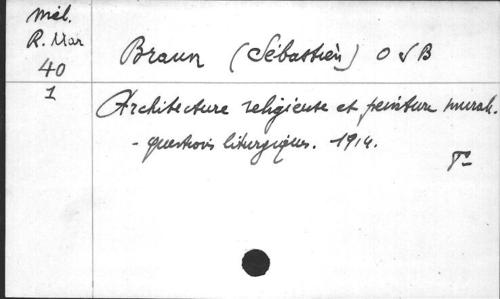 Mél.
R. Mar
40
1
Braun (Sébastien) O S B
Architecture religieuse et peinture murale.
- questions liturgiques. 1914.